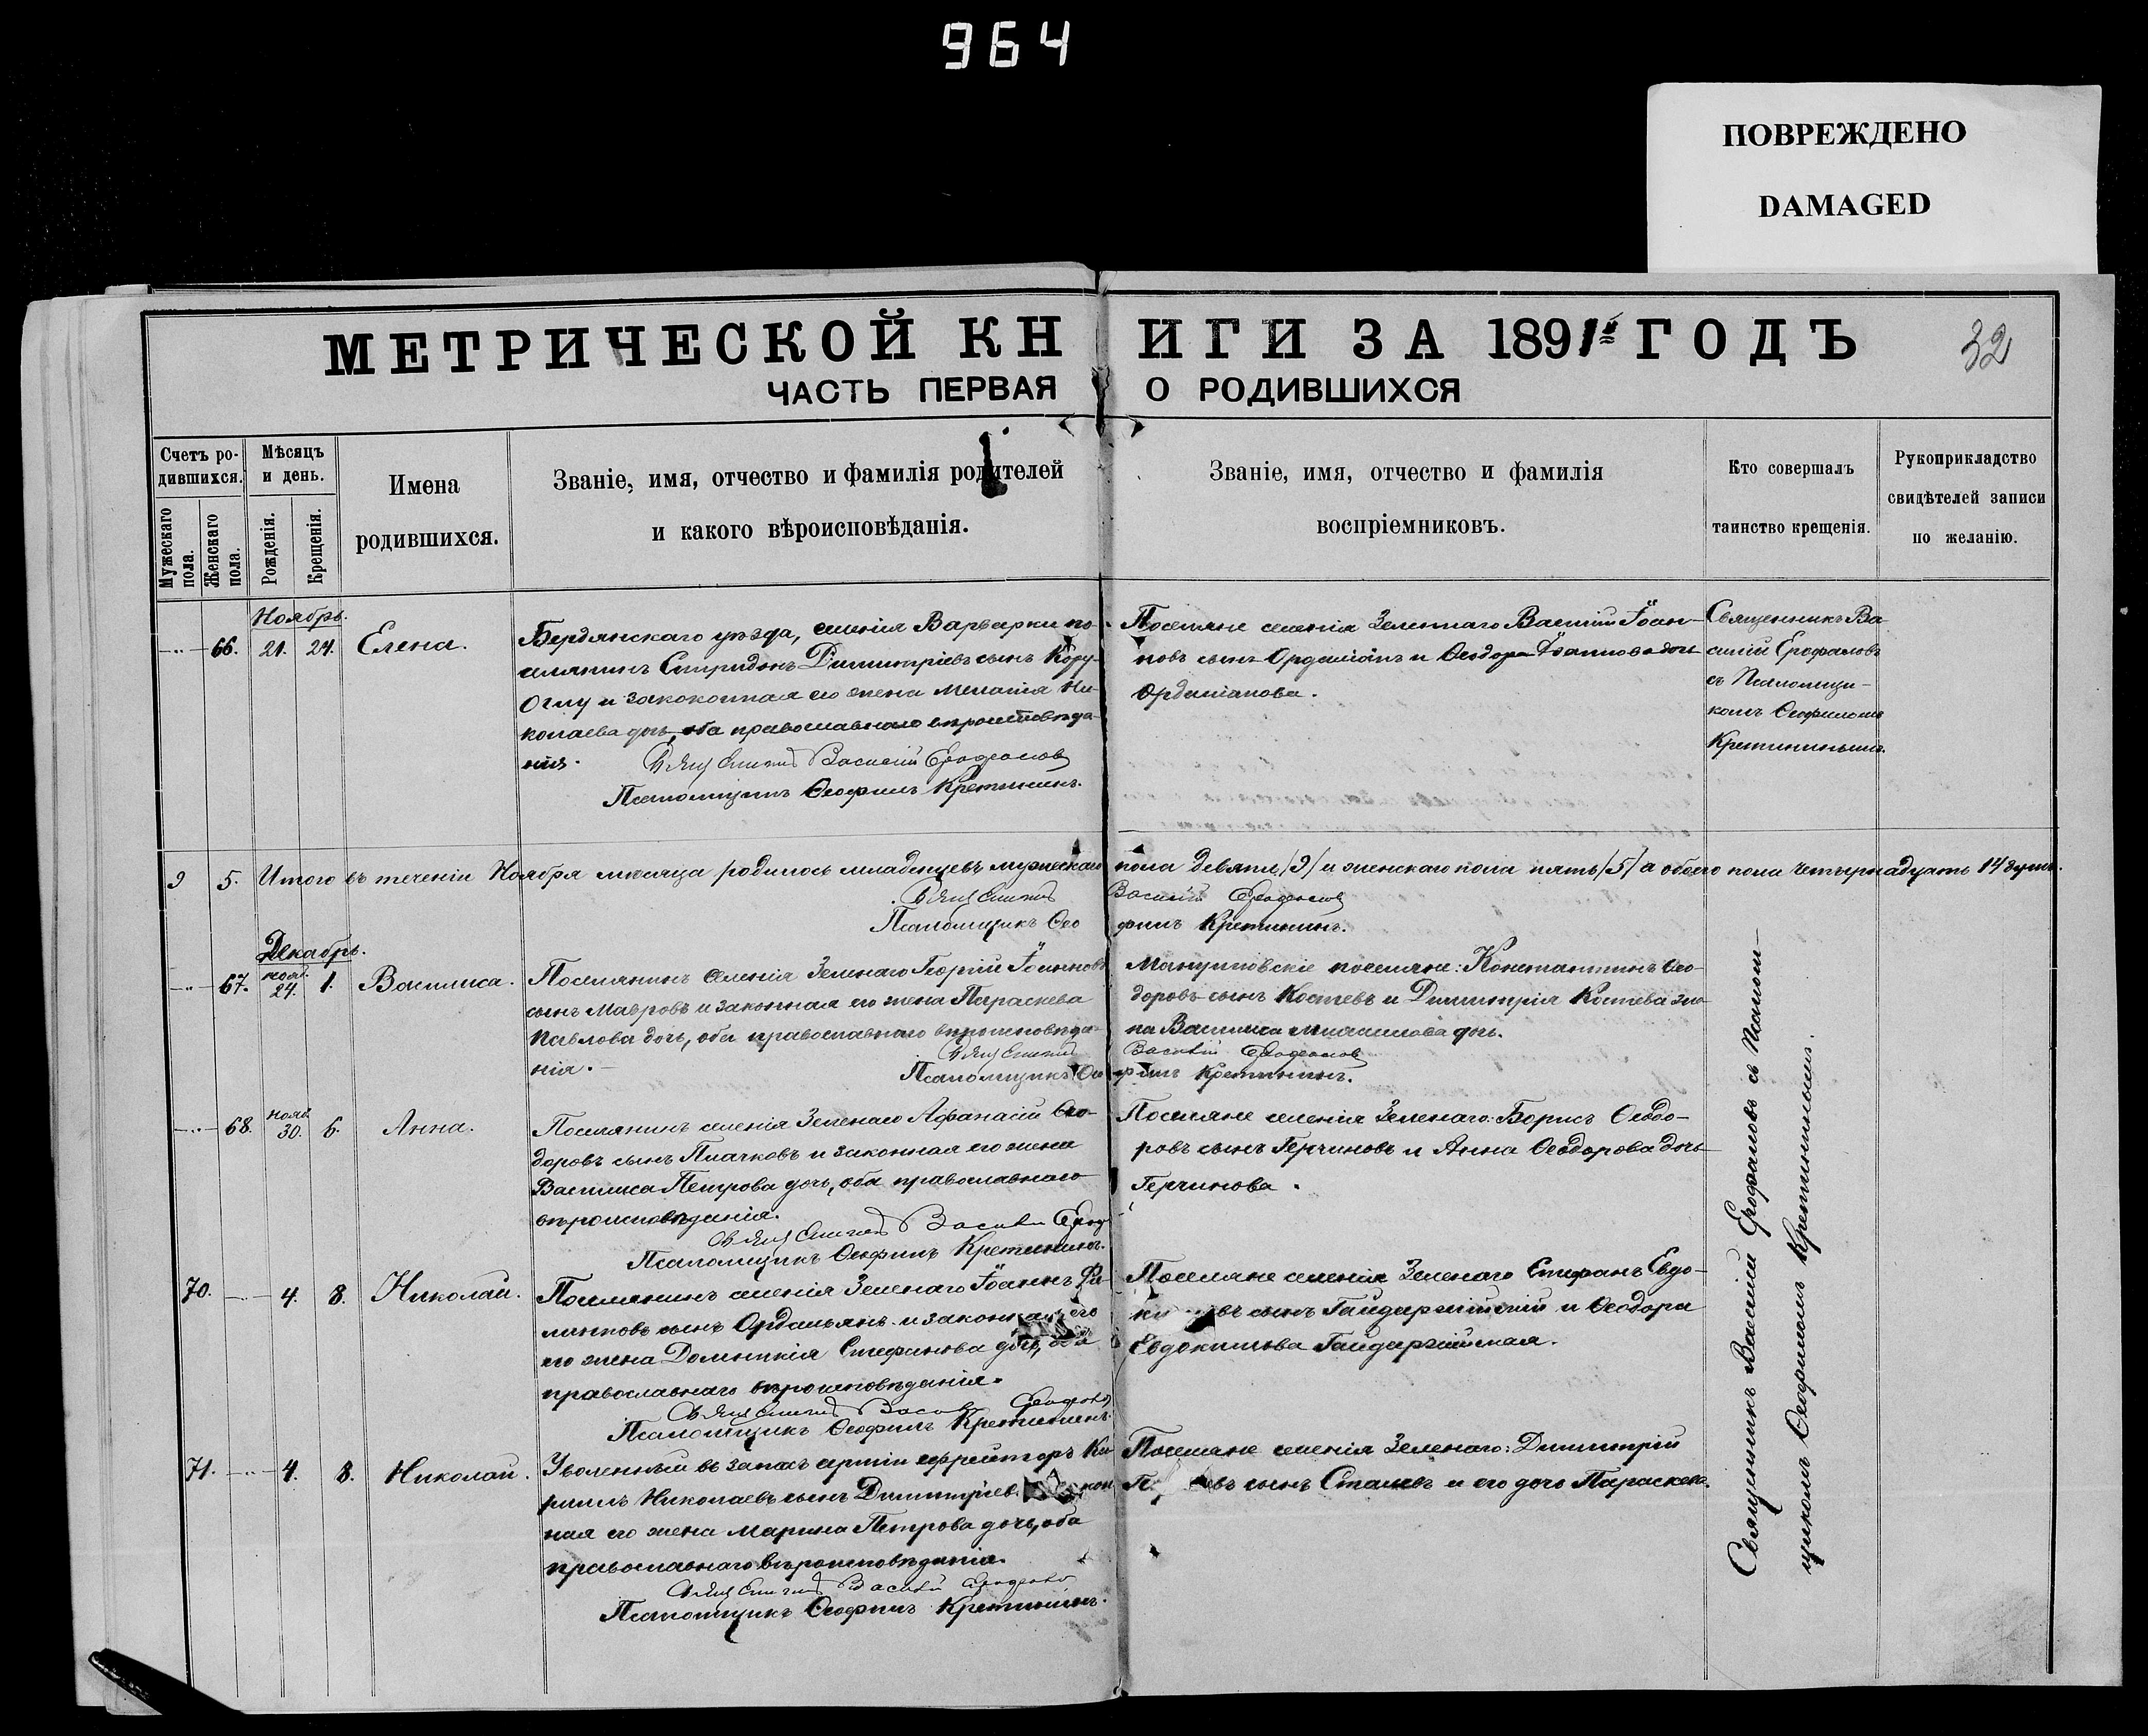 964
ПОВРЕЖДЕНО
DAMAGED
МЕТРИЧЕСКОЙ КНИГИ ЗА 1891й ГОДЪ
32
ЧАСТЬ ПЕРВАЯ О РОДИВШИХСЯ
Счетъ ро-
дившихся.
Мужескаго пола.
Женскаго пола.
Мѣсяцъ
и день.
Рожденія.
Крещенія.
Имена
родившихся.
Званіе, имя, отчество и фамилія родителей
и какого вѣроисповѣданія.
Званіе, имя, отчество и фамилія
воспріемниковъ.
Кто совершалъ
таинство крещенія.
Рукоприкладство
свидѣтелей записи
по желанію.
Ноябрь.
66. 21. 24. Елена.
Бердянскаго уѣзда, селенія Варварки по-
селянинъ Спиридонъ Димитріевъ сынъ Кору-
Оглу и законная его жена Меланія Ни-
колаева дочь, оба православнаго вѣроисповѣда-
нія.
Василій Ерофаловъ
Псаломщикъ Ѳеофилъ Кретининъ.
Поселяне селенія Зеленаго Василій Іоан-
новъ сынъ Орданіанъ и Ѳеодора Іоаннова дочь
Орданіанова.
Священникъ Ва-
силій Ерофаловъ
съ Псаломщи-
комъ Ѳеофиломъ
Кретининымъ.
9 5. Итого въ теченіи Ноября мѣсяца родилось младенцевъ мужескаго пола девять /9/ и женскаго пола пять /5/ а обоего пола четырнадцать 14 душъ.
Василій Ерофаловъ
Псаломщикъ Ѳеофилъ Кретининъ.
Декабрь.
67. нояб. 24. 1. Василиса.
Поселянинъ селенія Зеленаго Георгій Іоанновъ
сынъ Мавровъ и законная его жена Параскева
Павлова дочь, оба православнаго вѣроисповѣда-
нія.
Василій Ерофаловъ
Псаломщикъ Ѳеофилъ Кретининъ.
поселяне: Константинъ Ѳео-
доровъ сынъ Костевъ и Димитрія Костева же-
на Василиса дочь.
68. нояб. 30. 6. Анна.
Поселянинъ селенія Зеленаго Афанасій Ѳео-
доровъ сынъ Плачковъ и законная его жена
Василиса Петрова дочь, оба православнаго
вѣроисповѣданія.
Псаломщикъ Ѳеофилъ Кретининъ.
Поселяне селенія Зеленаго: Борисъ Ѳеодо-
ровъ сынъ Герчиновъ и Анна Ѳеодорова дочь
Герчинова.
70. 4. 8. Николай.
Поселянинъ селенія Зеленаго Іоаннъ Фи-
липповъ сынъ Орданьянъ и законная его
его жена Домникія Стефанова дочь, оба
православнаго вѣроисповѣданія.
Псаломщикъ Ѳеофилъ Кретининъ.
Поселяне селенія Зеленаго Стефанъ Евдо-
сынъ Гайдаржійскій и Ѳеодора
Евдокимова Гайдаржійская.
71. 4. 8. Николай.
Уволенный въ запасъ арміи ефрейторъ Ки-
риллъ Николаевъ сынъ Димитріев
ная его жена Марина Петрова дочь, оба
православнаго вѣроисповѣданія.
Псаломщикъ Ѳеофилъ Кретининъ.
Поселяне селенія Зеленаго: Димитрій
сынъ Сталевъ и его дочь Параскева.
Священникъ Василій Ерофаловъ съ Псалом-
щикомъ Ѳеофиломъ Кретининымъ.